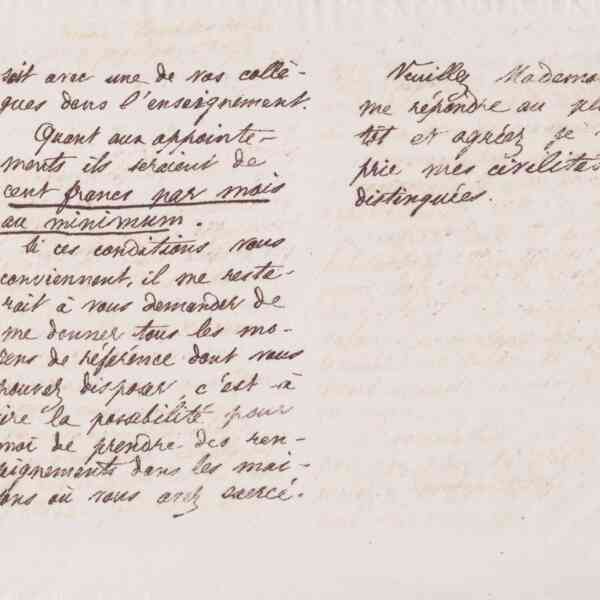 soit avec une de vos collè-
gues dans l'enseignement.
Quant aux appointe-
ments ils seraient de
cent francs par mois
au minimum.
Si ces conditions vous
conviennent, il me reste-
rait à vous demander de
me donner tous les mo-
yens de référence dont vous
pouvez disposer, c'est-à
ire la possibilité pour
moi de prendre des ren-
seignements dans les mai-
ons où vous avez exercé.
Veuillez Mademo
me répondre au pl
tôt et agréez je
prie mes civilités
distinguées.